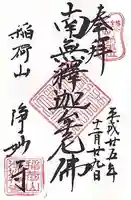 奉拜
平成廿五年
十一月廿九日
南無釋迦牟尼佛
稲荷山
浄妙寺